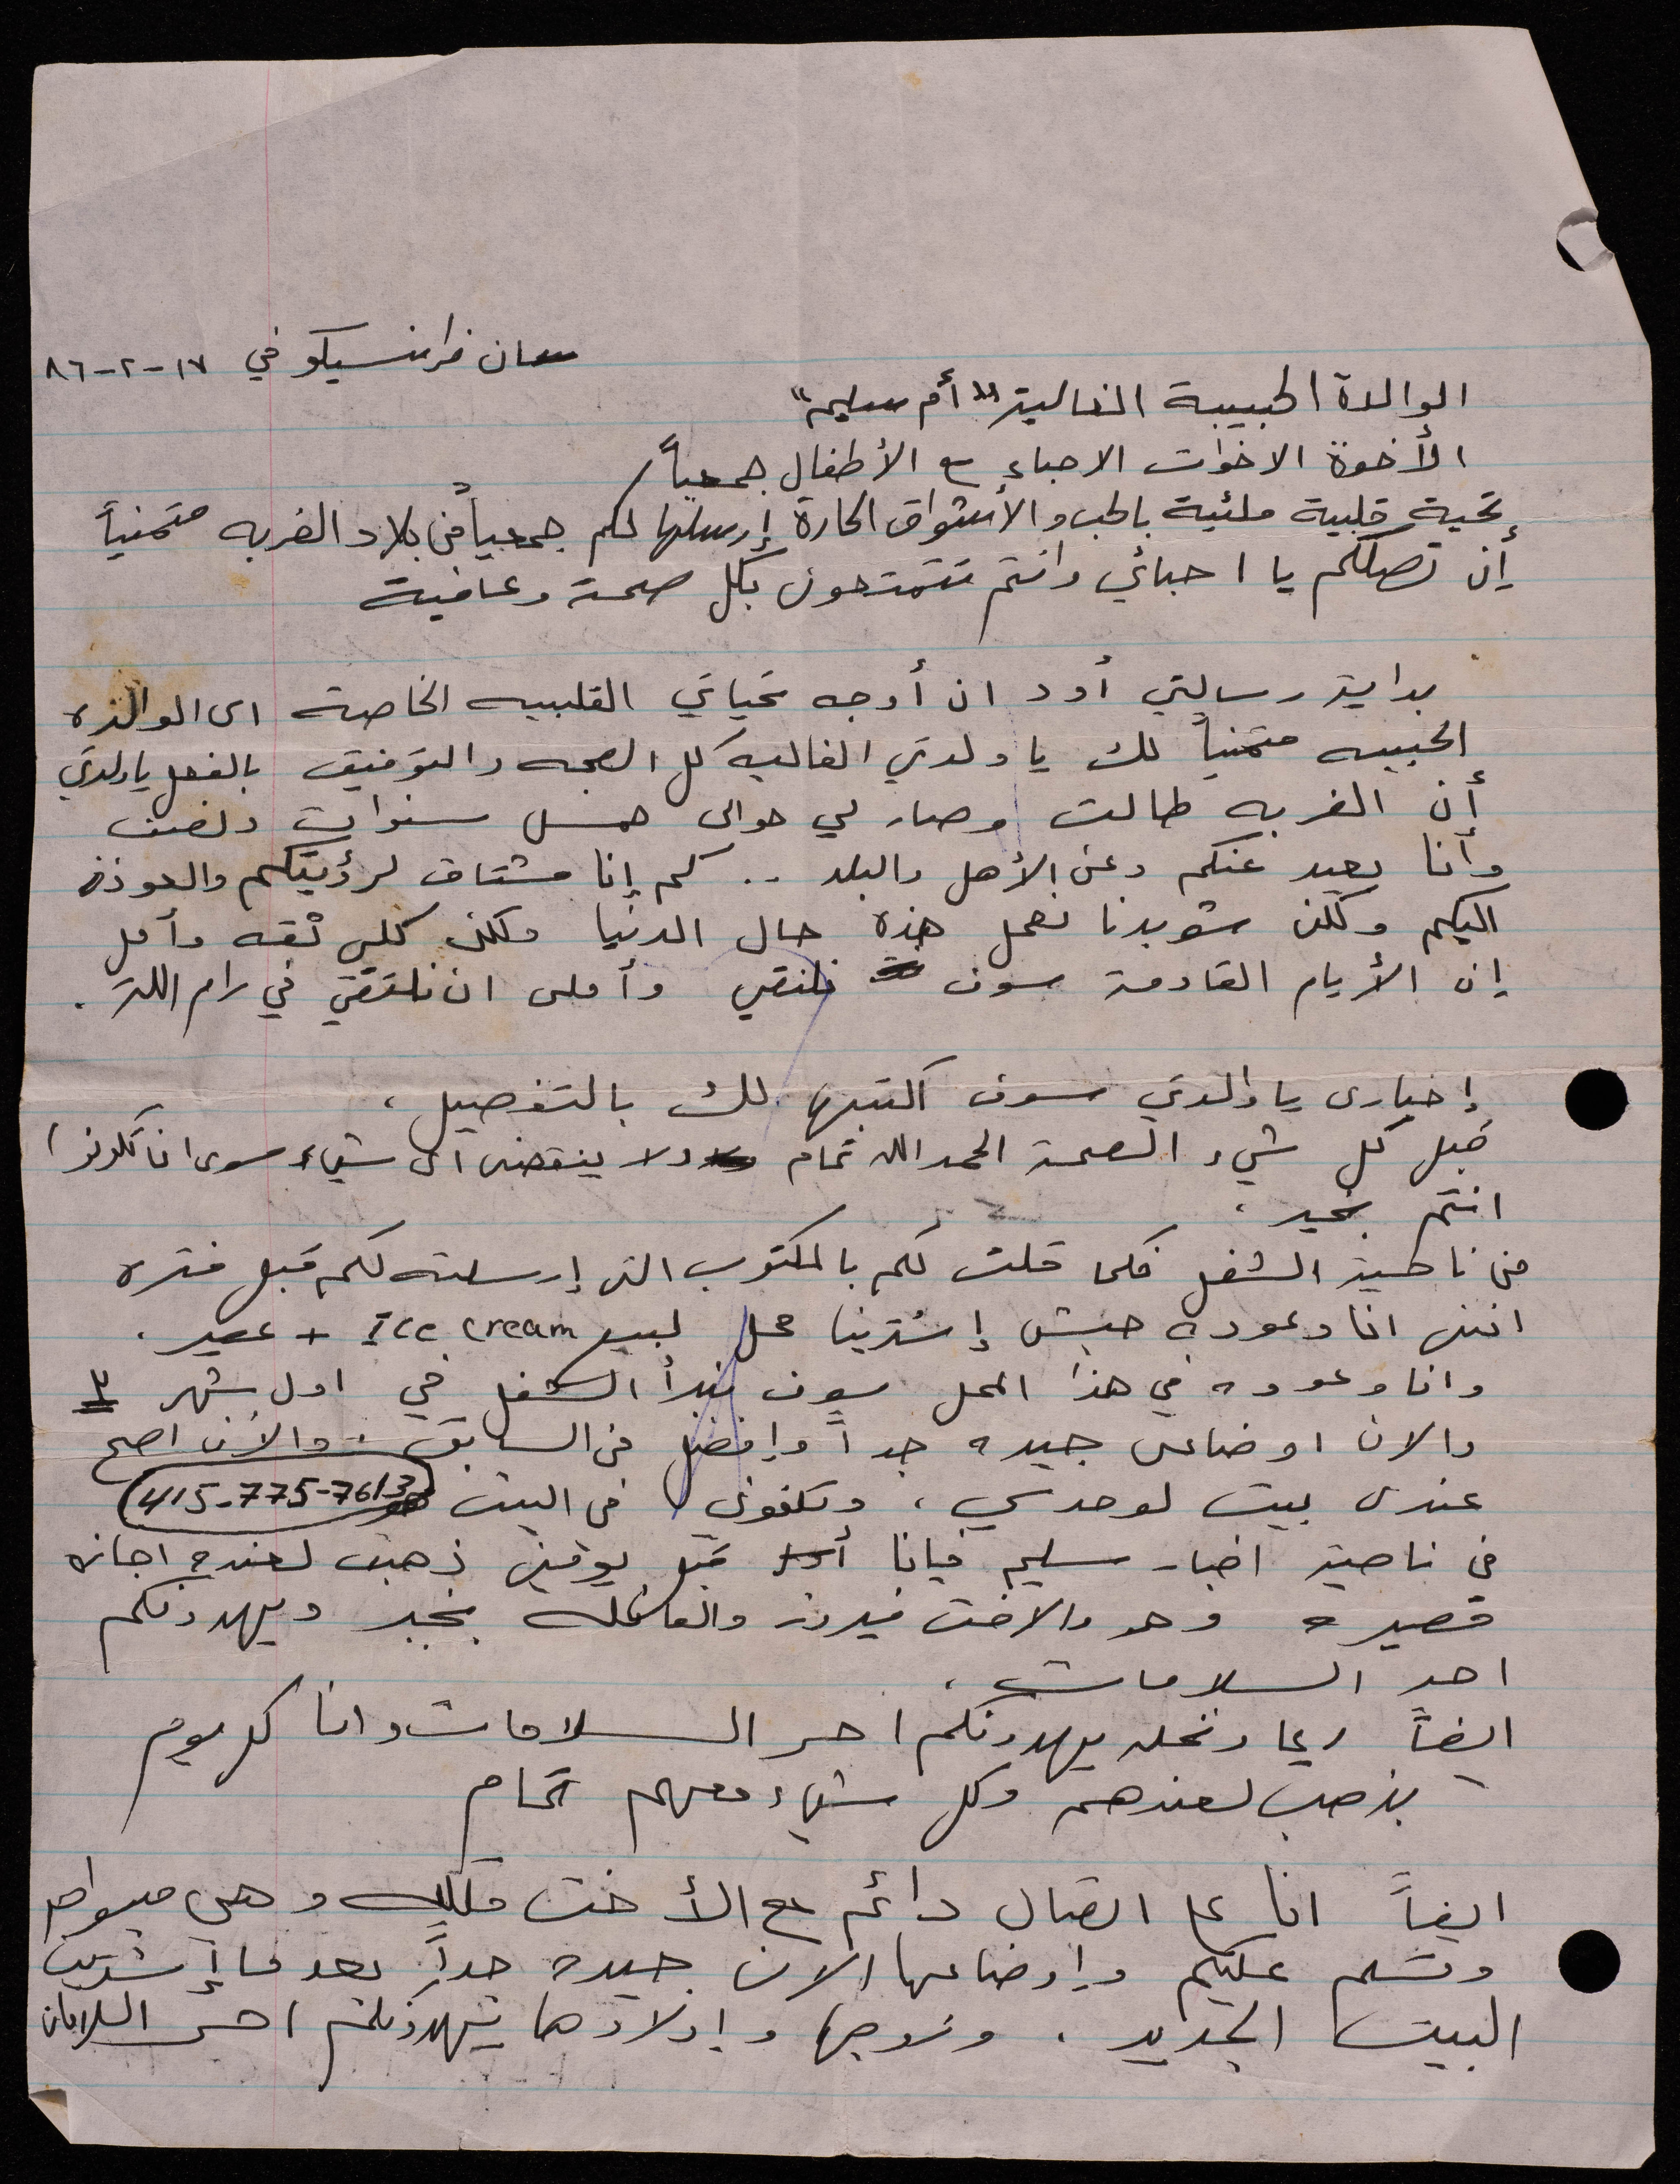 سان فرانسيسكو في ١٧-٢-٨٦
الوالدة الحبيبة الغالية "أم سليم"
الأخوة الاخوات الاحباء مع الأطفال جمعياً /
تحية قلبية مليئة بالحب والأشواق الحارة إرسلها لكم جمعياً من بلاد الغربه متمنياً
إن تصلكم يا احبائي وانتم تتمتعون بكل صحة وعافية
بداية رسالتي أود ان أوجه تحياتي القلبيه الخاصة الى الوالده
الحبيبه متمنياً لك يا ولدتي الغاليه كل الصحه والتوفيق بالفعل يا ولدتي
أن الغربه طالت وصار لي حوالى خمس سنوات ونصف
وأنا بعيد عنكم وعن الأهل والبلد .. كم إنا مشتاق لرؤيتكم والعودة
اليكم ولكن شو بدنا نعمل هذه حال الدنيا ولكن كلي ثقه وأمل
إن الأيام القادمة سوف نلتقي وأملى ان نلتقي في رام الله .
إخبارى يا والدتي سوف أكتبها لك بالتفصيل ،
قبل كل شيء الصحة الحمد الله تمام ولا ينقصنى اى شيء سوى ان تكونوا
انتم بخير ،
من ناحية الشغل فكما قلت لكم بالمكتوب التى إرسلته لكم قبل فتره
اننى انا وعوده حبش إشترينا محل لبيع Ice cream + عصير .
وانا وعوده في هذا المحل سوف نبدأ الشغل في اول شهر ٣
والان اوضاعى جيده جداً وإفضل من السابق . والأن اصبح
عندى بيت لوحدي ، وتلفوني في البيت 415-775-7613
من ناحية اخبار سليم فإنا قبل يومين ذهبت لعنده اجازه
قصيره وهو والاخت فيروز والعائله بخير ويهدونكم
احر السلامات ،
ايضاً ريما ونخله يهدونكم احر السلامات وانا كل يوم
بذهب لعندهم وكل شيء معهم تمام
ايضاً انا على اتصال دائم مع الأخت ملكه وهي
وتسلم عليكم وإوضاعها الان جيده جداً بعد ما إشترت
البيت الجديد . وزوجها وإولادهما يهدونكم احر السلامات